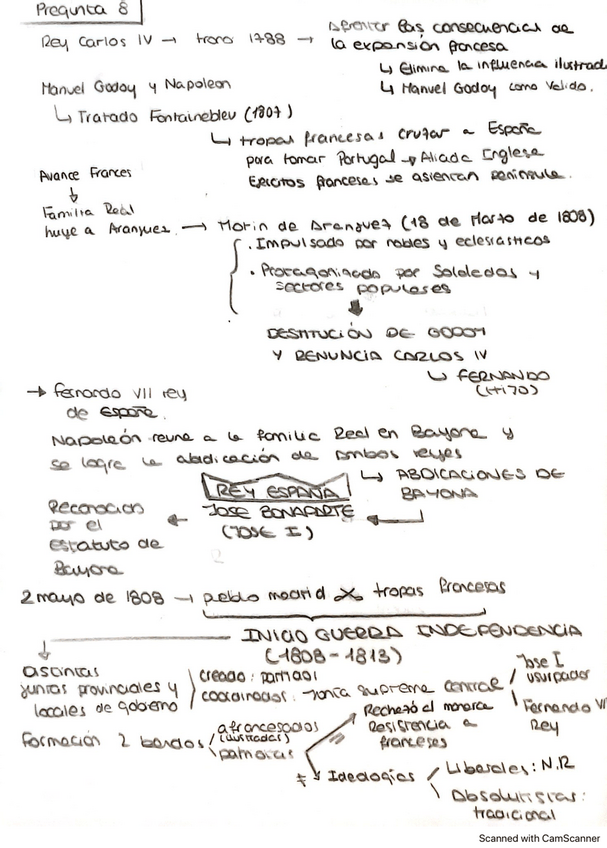 Pregunta 8
Rey Carlos IV → trono 1788 → afrontar las consecuencias de
la expansión francesa
↳ Elimina la influencia ilustrad
↳ Manuel Godoy como Valido.
Manuel Godoy y Napoleon
↳ Tratado Fontainebleu (1807)
↳ tropas francesas cruzar a España
para tomar Portugal → Aliada Inglesa
Ejercitos franceses se asientan península.
Avance Frances
↓
Familia Real
huye a Aranjuez → Motin de Aranjuez (18 de Marzo de 1808)
· Impulsado por nobles y eclesiasticos
· Protagonizado por Soldados y
sectores populares
DESTITUCIÓN DE GODOY
Y RENUNCIA CARLOS IV
↳ FERNANDO
(HIJO)
→ Fernando VII rey
de España.
Napoleón reune a la familia Real en Bayona y
se logra la abdicación de ambos reyes
↳ ABDICACIONES DE
BAYONA
REY ESPAÑA
JOSE BONAPARTE
(JOSE I)
Reconocido
por el
estatuto de
Bayona
2 mayo de 1808 → pueblo madrid X tropas francesas
INICIO GUERRA INDEPENDENCIA
(1808 - 1813)
distintas
juntas provinciales y
locales de gobierno
creado: patriot
coordinadas: Junta Suprema central
Jose I
usurpador
Fernando VII
Rey
Formación 2 bandos
afrancesados
(ilustrados)
patriotas
Rechazó el monarca
Resistencia a
franceses
≠ Ideologías
Liberales: N.R
Absolutistas:
tradicional
Scanned with CamScanner